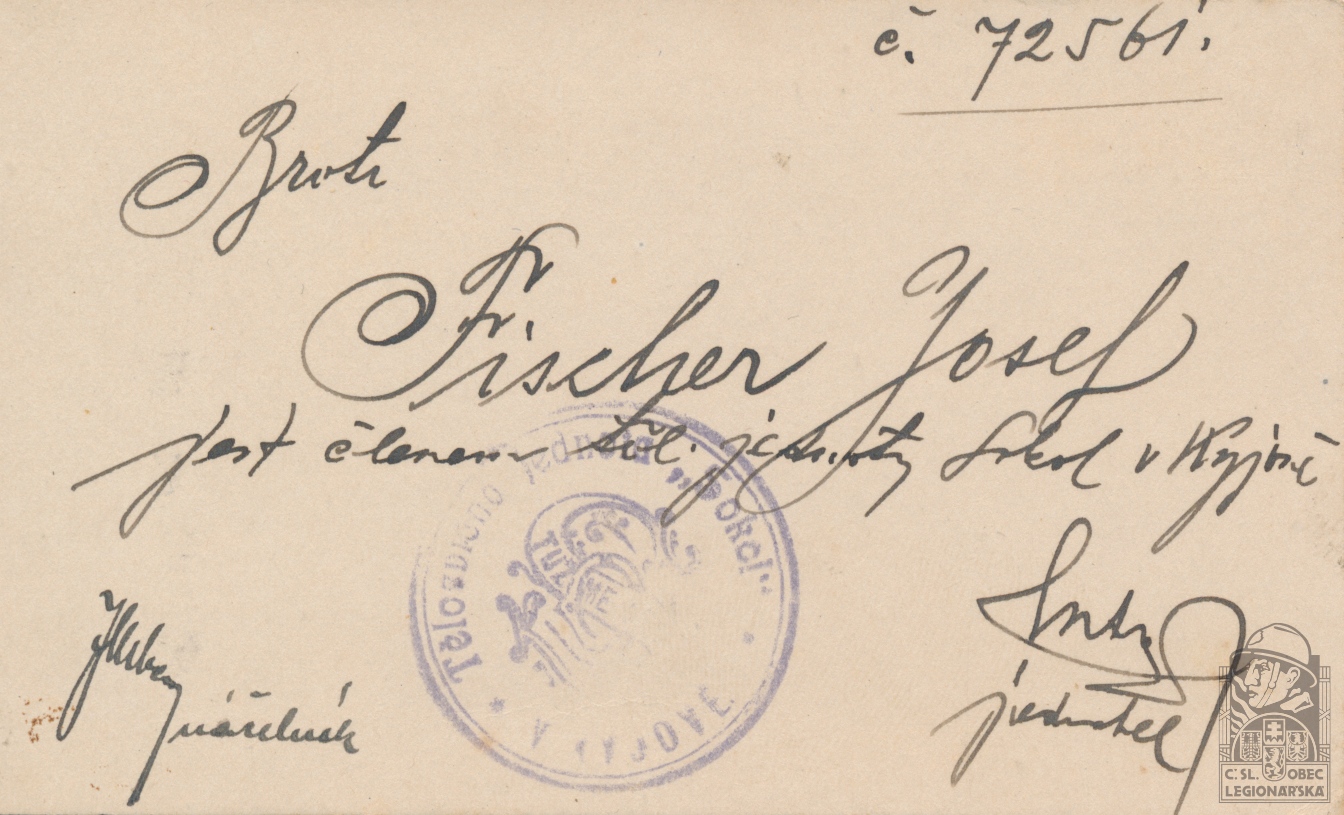 č. 72561.
Bratr
Fischer Josef
jest členem těl. jednoty Sokol v Kyjově
náčelník
jednatel
Tělocvičná jednota „Sokol“
V KYJOVĚ
Č.SL. OBEC
LEGIONÁŘSKÁ